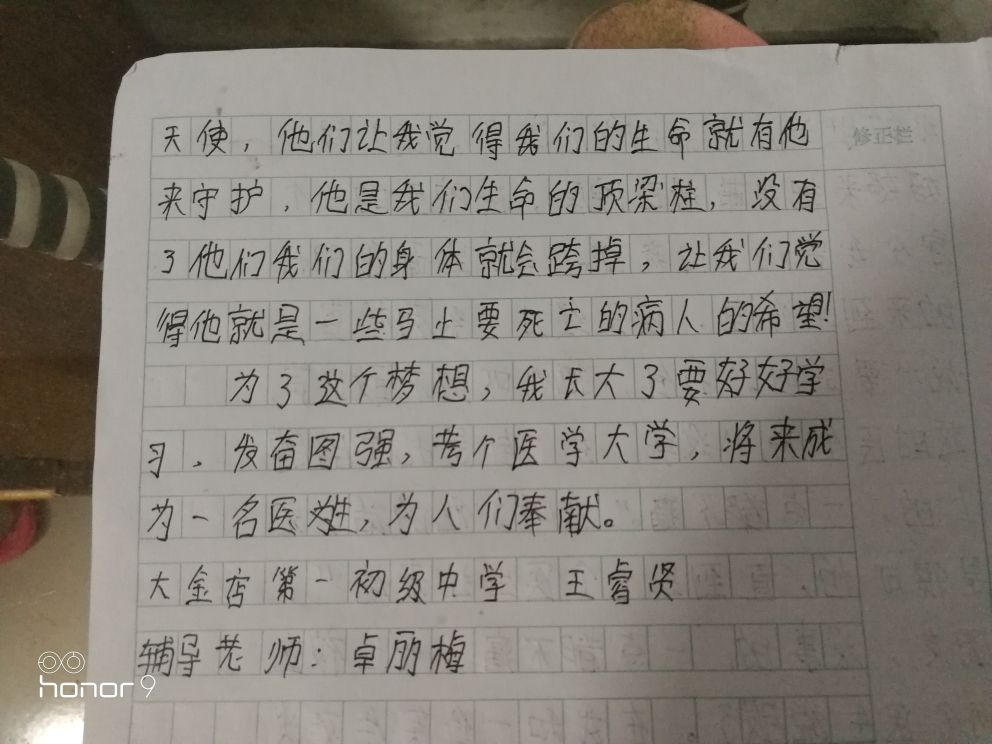 天使，他们让我觉得我们的生命就有他
来守护，他是我们生命的顶梁柱，没有
了他们我们的身体就会跨掉，让我们觉
得他就是一些马上要死亡的病人的希望!
为了这个梦想，我长大了要好好学
习，发奋图强，考个医学大学，将来成
为一名医姓，为人们奉献。
大金店第一初级中学 王睿贤
辅导老师：卓丽梅
修正栏
honor 9